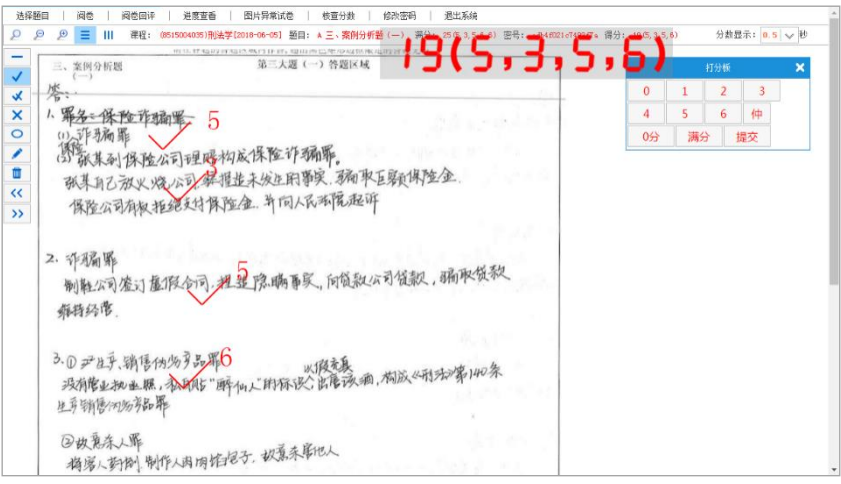 选择题目 | 阅卷 | 阅卷回评 | 进度查看 | 图片异常试卷 | 核查分数 | 修改密码 | 退出系统
课程: (8515004035)刑法学[2018-06-05] 题目: A 三、案例分析题 (一) 满分: 25(
密号:
得分: 19(5,3,5,6)
分数显示: 0.5 秒
19(5,3,5,6)
打分板 ×
0 1 2 3
4 5 6 仲
0分 满分 提交
三、案例分析题
(一)
第三大题 (一) 答题区域
答:
1. 罪名:保险诈骗罪 5
(1) 保险诈骗罪
(2) 张某到保险公司理赔构成保险诈骗罪。
3
张某自己放火烧公司,捏造未发生的事实,骗取巨额保险金.
保险公司有权拒绝支付保险金,并向人民法院起诉
2. 诈骗罪
5
制鞋公司签订虚假合同,捏造隐瞒事实,向贷款公司贷款,骗取贷款
维持经营.
3.① 生产、销售伪劣产品罪 6
以假充真
没有营业执照,私自贴"醉仙人"的标识,出售该酒,构成《刑法》第140条
生产销售伪劣产品罪
②故意杀人罪
将客人药倒,制作人肉馅包子,故意杀害他人